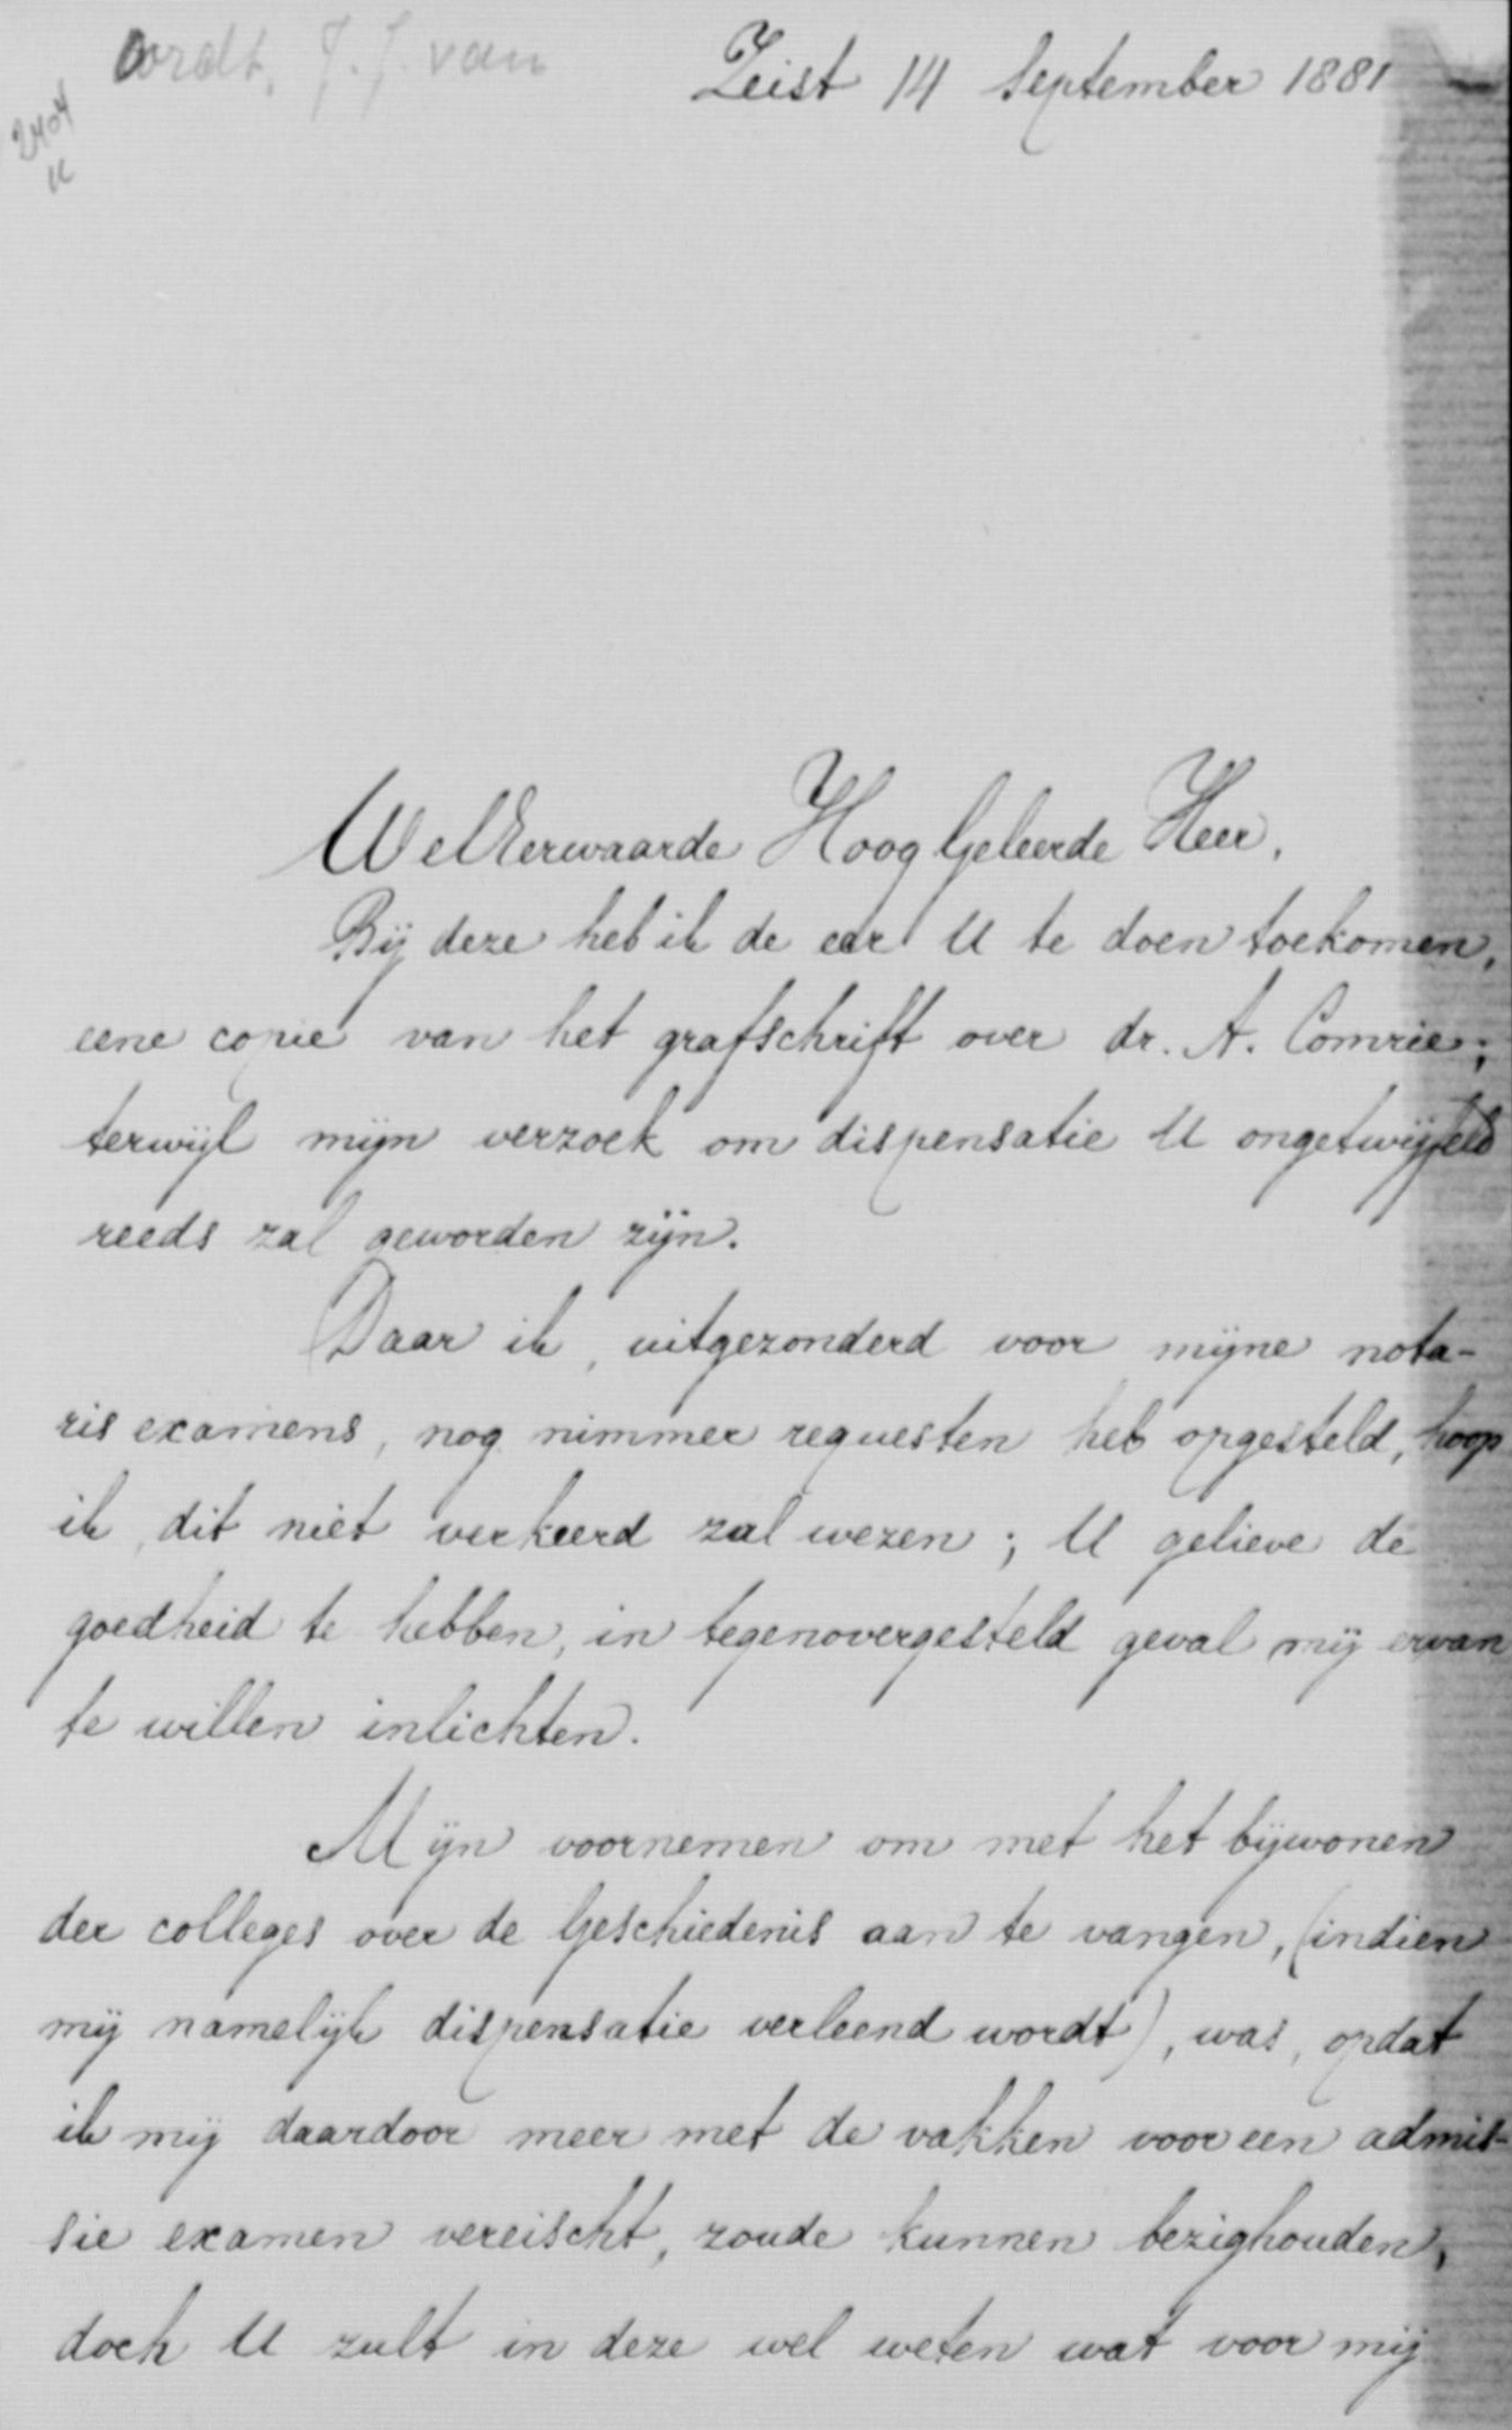 Oordt, J. J. van
2404
Zeist 14 September 1881
WelEerwaarde HoogGeleerde Heer,
Bij deze heb ik de eer U te doen toekomen,
eene copie van het grafschrift over dr. A. Comrie;
terwijl mijn verzoek om dispensatie U ongetwijfeld
reeds zal geworden zijn.
Daar ik, uitgezonderd voor mijne nota-
ris examens, nog nimmer requesten heb opgesteld, hoop
ik, dit niet verkeerd zal wezen; U gelieve de
goedheid te hebben, in tegenovergesteld geval mij ervan
te willen inlichten.
Mijn voornemen om met het bijwonen
der colleges over de Geschiedenis aan te vangen, (indien
mij namelijk dispensatie verleend wordt), was, opdat
ik mij daardoor meer met de vakken voor een admis-
sie examen vereischt, zoude kunnen bezighouden,
doch U zult in deze wel weten wat voor mij